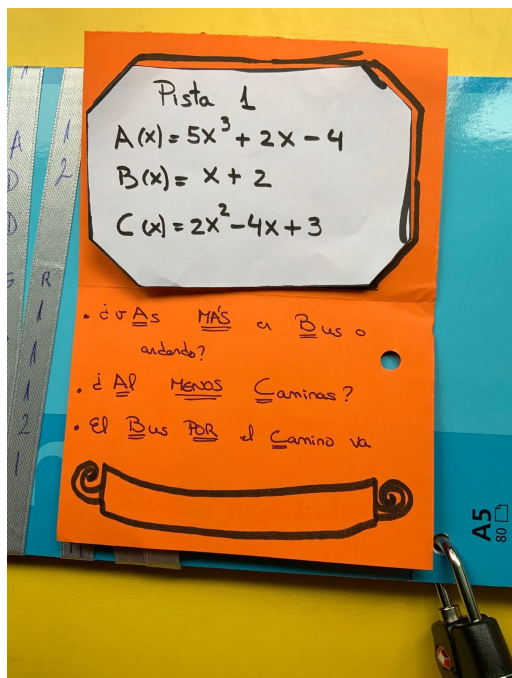 Pista 1
A(x) = 5x³ + 2x - 4
B(x) = x + 2
C(x) = 2x² - 4x + 3
• ¿vAs MÁS en Bus o
andando?
• ¿Al MENOS Caminas?
• El Bus POR el Camino va
A
1
D
2
D
G R
1
1
1
2
1
A5
80